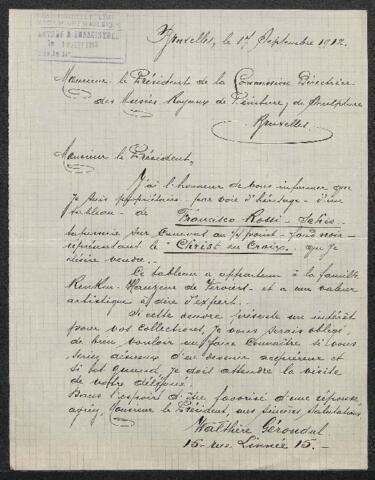 Bruxelles, le 17 Septembre 1912.
Monsieur le Président de la Commission Directrice
des Musées Royaux de Peinture, de Sculpture
Bruxelles
Monsieur le Président,
J'ai l'honneur de vous informer que
je suis propriétaire par voie d'héritage - d'un
tableau - de Francisco Rossi -
sur canevas au point - fond noir -
représentant le "Christ en Croix" que je
désire vendre.
Ce tableau a appartenu à la famille
de Verviers et a une valeur
artistique à dire d'expert.
Si cette œuvre présente un intérêt
pour vos collections, je vous serais obligé
de bien vouloir me faire connaître si vous
seriez désireux d'en devenir acquéreur et
si et quand je dois attendre la visite
de votre délégué.
Dans l'espoir d'être favorisé d'une réponse,
agréez, Monsieur le Président, mes sincères salutations
Walthère Gérondal
15 - rue Linnée 15.-